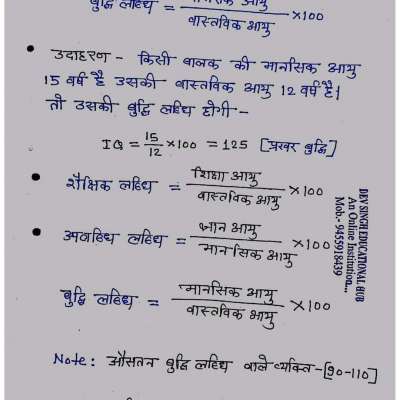 बुद्धि लब्धि = मानसिक आयु / वास्तविक आयु ×100
• उदाहरण - किसी बालक की मानसिक आयु
15 वर्ष है उसकी वास्तविक आयु 12 वर्ष है।
तो उसकी बुद्धि लब्धि होगी -
IQ = 15/12 ×100 = 125 [प्रखर बुद्धि]
• शैक्षिक लब्धि = शिक्षा आयु / वास्तविक आयु ×100
• उपलब्धि लब्धि = ज्ञान आयु / मानसिक आयु ×100
बुद्धि लब्धि = मानसिक आयु / वास्तविक आयु ×100
Note: औसतन बुद्धि लब्धि वाले व्यक्ति -[90-110]
DEV SINGH EDUCATIONAL HUB
An Online Institution...
Mob:- 9459918439